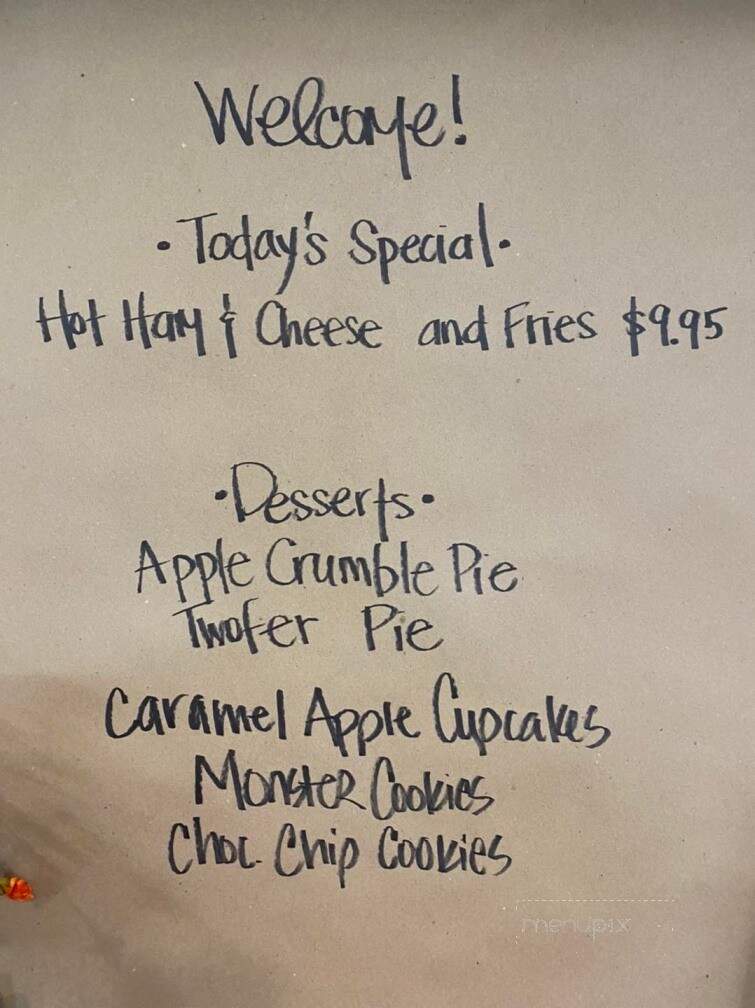 Welcome!
• Today's Special •
Hot Ham & Cheese and Fries $9.95
• Desserts •
Apple Crumble Pie
Twofer Pie
Caramel Apple Cupcakes
Monster Cookies
Choc. Chip Cookies
menupix